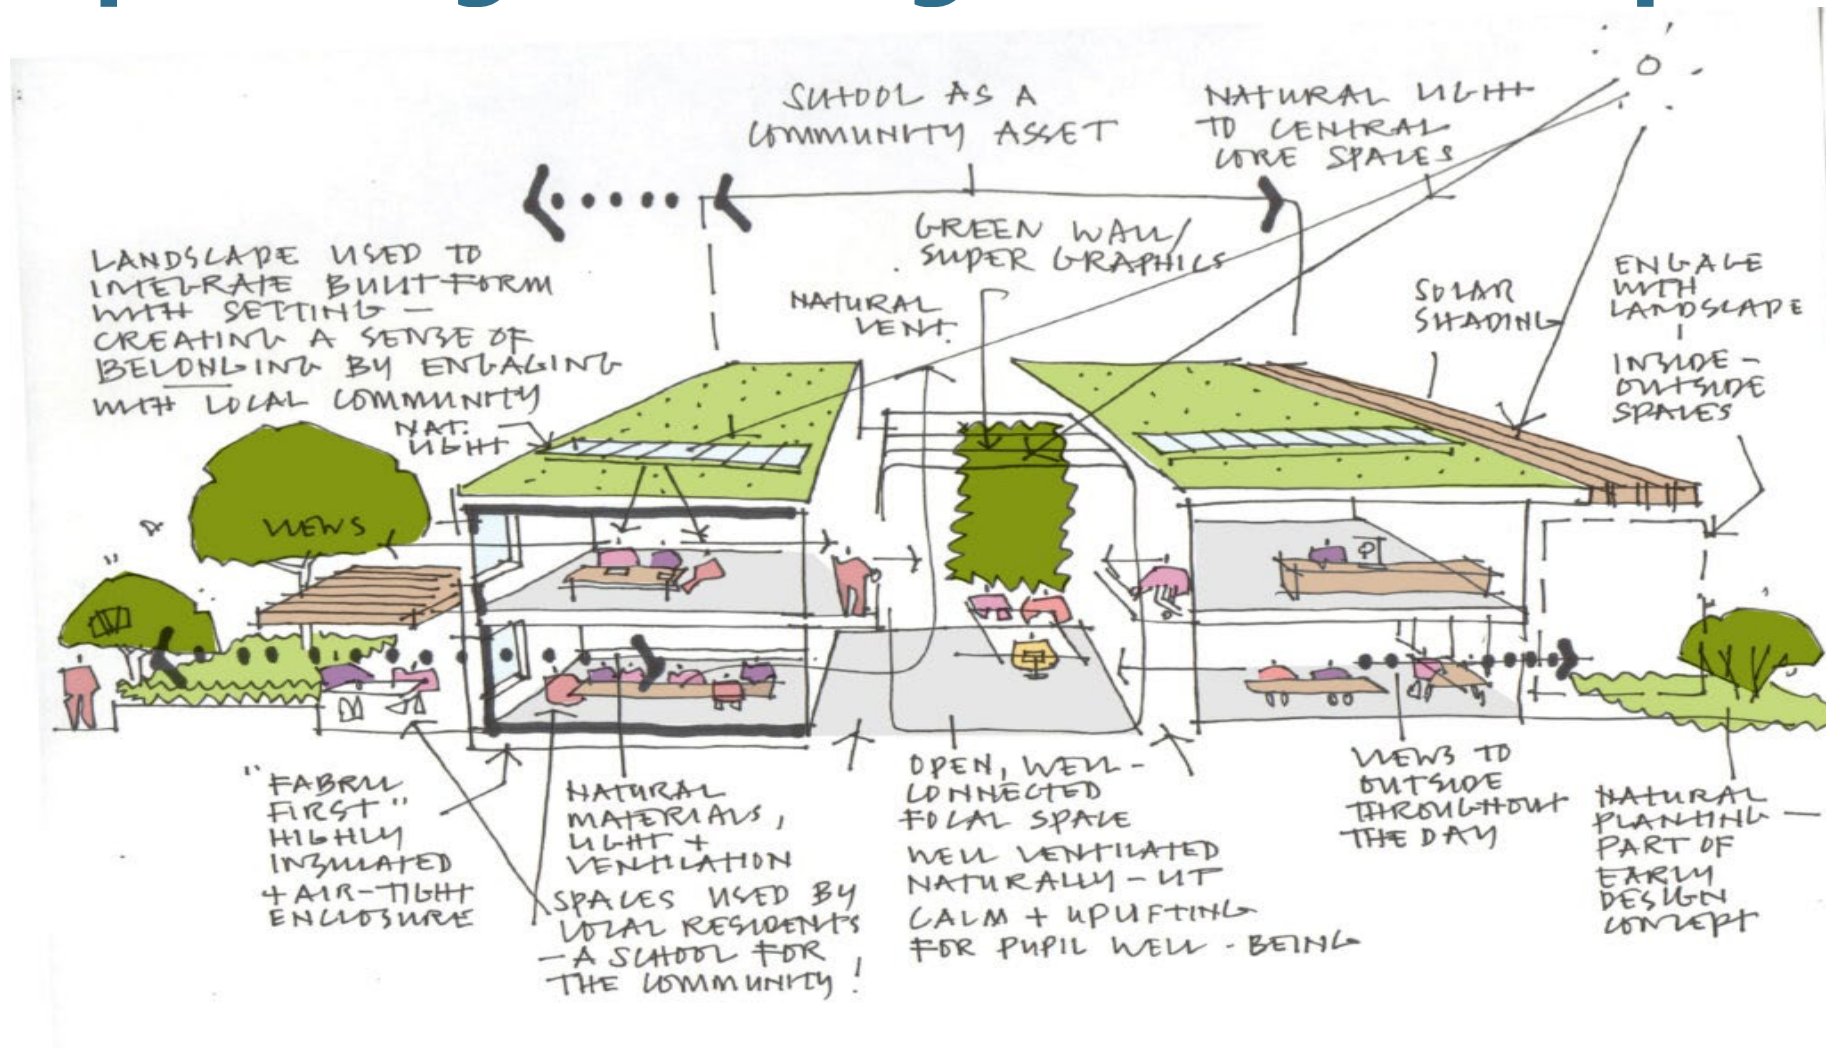 SCHOOL AS A
COMMUNITY ASSET
NATURAL LIGHT
TO CENTRAL
CORE SPACES
GREEN WALL/
SUPER GRAPHICS
LANDSCAPE USED TO
INTEGRATE BUILT FORM
WITH SETTING –
CREATING A SENSE OF
BELONGING BY ENGAGING
WITH LOCAL COMMUNITY
NATURAL
VENT.
SOLAR
SHADING
ENGAGE
WITH
LANDSCAPE
INSIDE –
OUTSIDE
SPACES
NAT.
LIGHT
VIEWS
"FABRIC
FIRST"
HIGHLY
INSULATED
+ AIR-TIGHT
ENCLOSURE
NATURAL
MATERIALS,
LIGHT +
VENTILATION
SPACES USED BY
LOCAL RESIDENTS
– A SCHOOL FOR
THE COMMUNITY!
OPEN, WELL-
CONNECTED
FOCAL SPACE
WELL VENTILATED
NATURALLY – LIT
CALM + UPLIFTING
FOR PUPIL WELL-BEING
VIEWS TO
OUTSIDE
THROUGHOUT
THE DAY
NATURAL
PLANTING –
PART OF
EARLY
DESIGN
CONCEPT